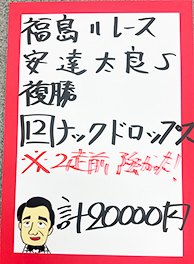 福島11レース
安達太良S
複勝
12ナックドロップス
※2走前 強かった!
計20000円